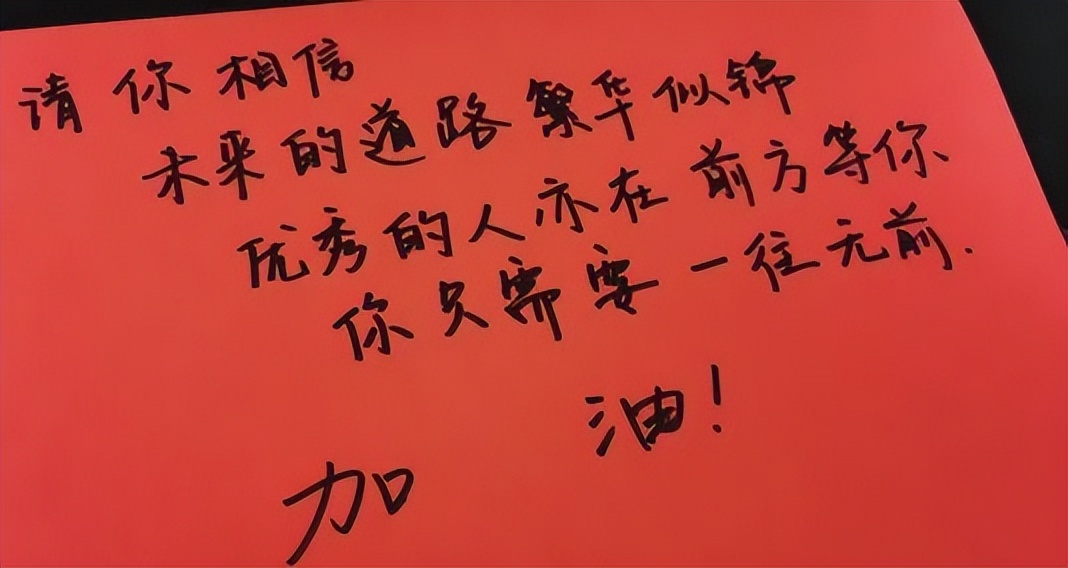 请你相信
未来的道路繁华似锦
优秀的人亦在前方等你
你只需要一往无前.
加油!